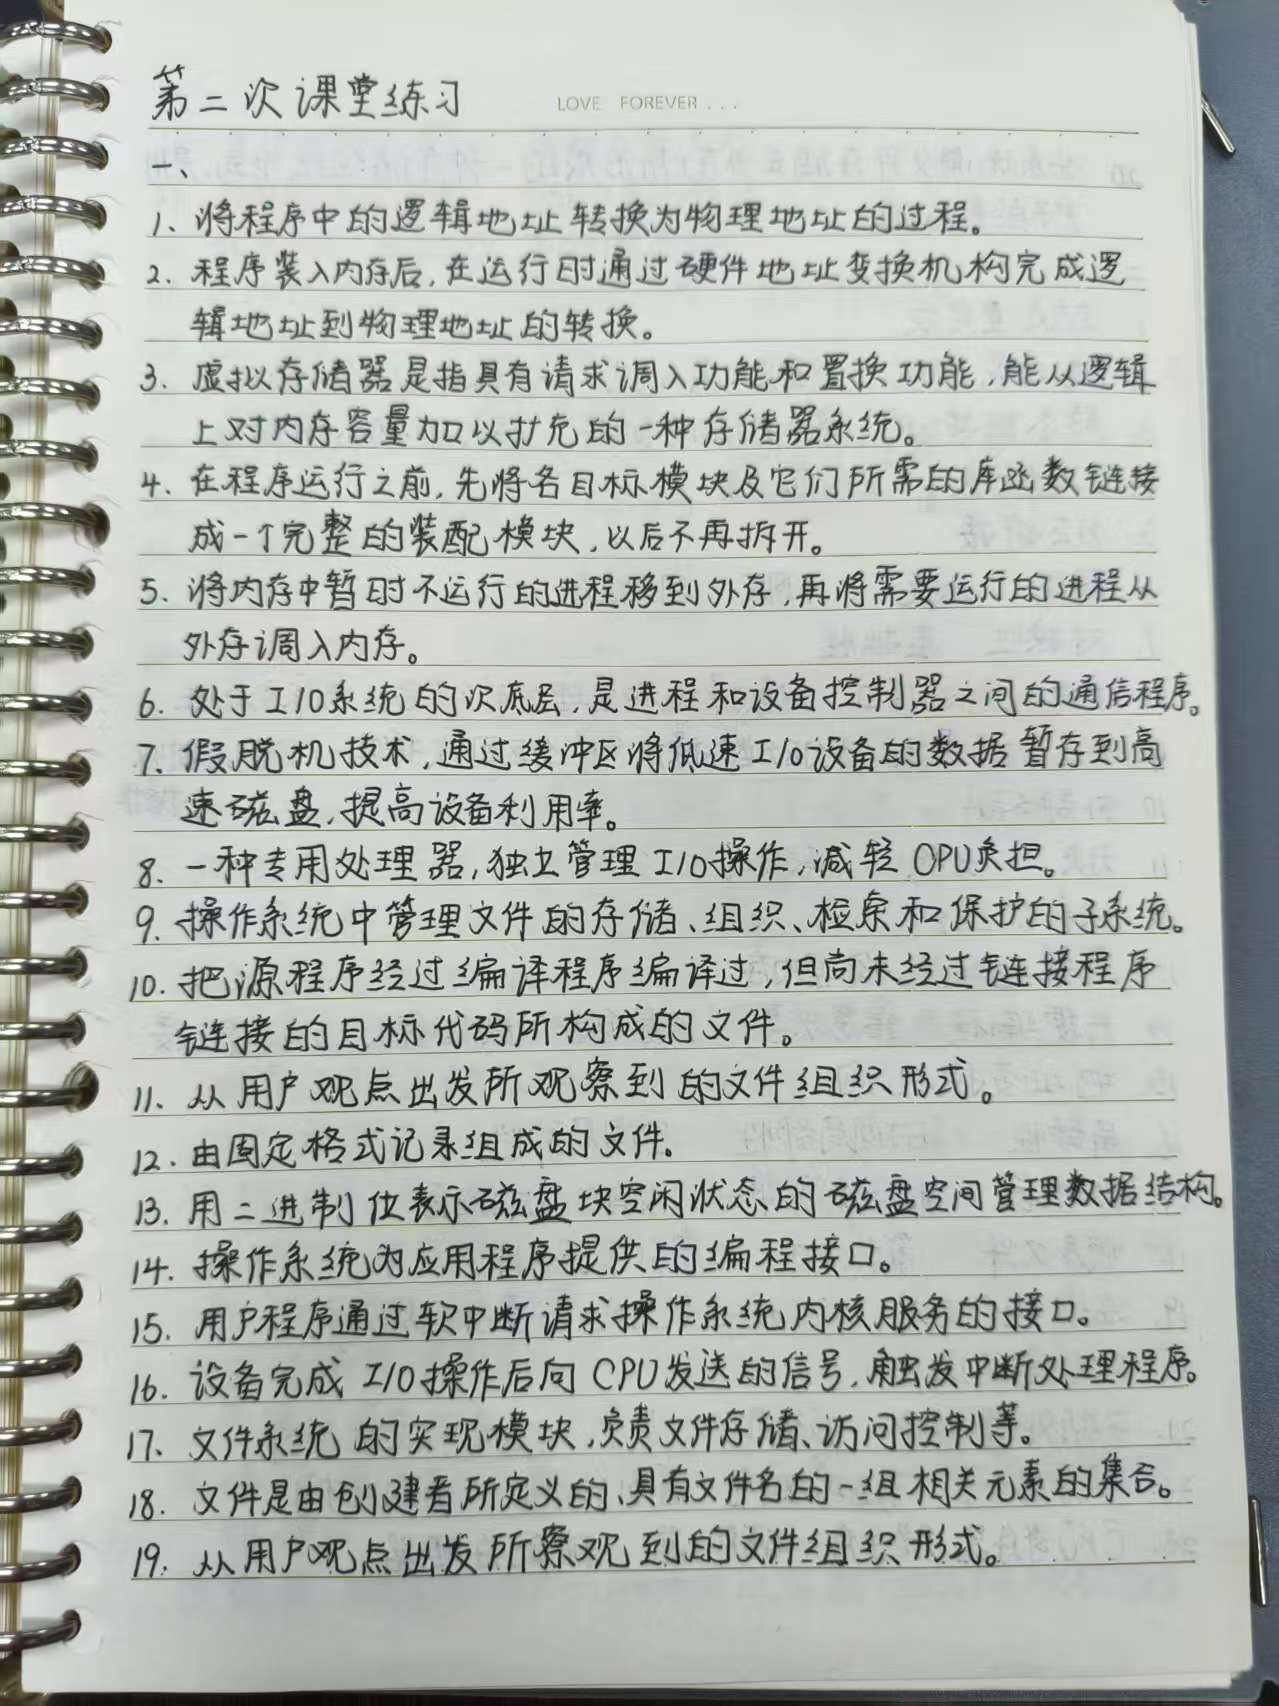 第二次课堂练习
LOVE FOREVER ...
一、
1、将程序中的逻辑地址转换为物理地址的过程。
2. 程序装入内存后,在运行时通过硬件地址变换机构完成逻
辑地址到物理地址的转换。
3. 虚拟存储器是指具有请求调入功能和置换功能,能从逻辑
上对内存容量加以扩充的一种存储器系统。
4. 在程序运行之前,先将各目标模块及它们所需的库函数链接
成一个完整的装配模块,以后不再拆开。
5. 将内存中暂时不运行的进程移到外存,再将需要运行的进程从
外存调入内存。
6. 处于I/O系统的次底层,是进程和设备控制器之间的通信程序。
7. 假脱机技术,通过缓冲区将低速I/O设备的数据暂存到高
速磁盘,提高设备利用率。
8. 一种专用处理器,独立管理I/O操作,减轻CPU负担。
9. 操作系统中管理文件的存储、组织、检索和保护的子系统。
10. 把源程序经过编译程序编译过,但尚未经过链接程序
链接的目标代码所构成的文件。
11、从用户观点出发所观察到的文件组织形式。
12. 由固定格式记录组成的文件。
13. 用二进制位表示磁盘块空闲状态的磁盘空间管理数据结构。
14. 操作系统为应用程序提供的编程接口。
15. 用户程序通过软中断请求操作系统内核服务的接口。
16. 设备完成I/O操作后向CPU发送的信号,触发中断处理程序。
17、文件系统的实现模块,负责文件存储、访问控制等。
18. 文件是由创建者所定义的、具有文件名的一组相关元素的集合。
19. 从用户观点出发所察观到的文件组织形式。